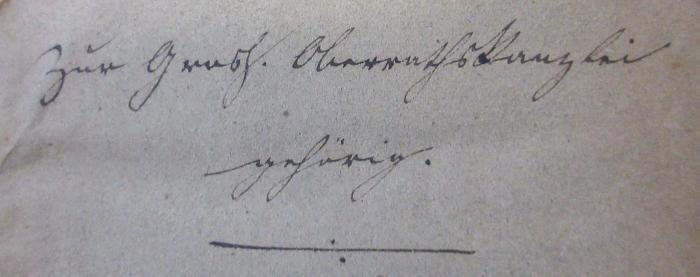 Zur Grosh. Oberrathskanzlei
gehörig.